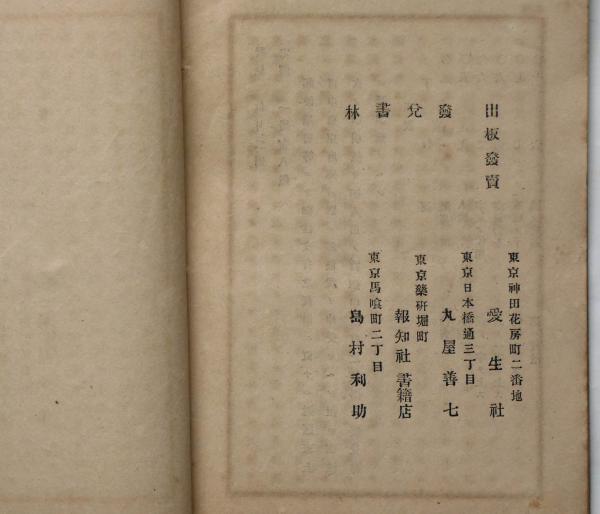 東京神田花房町二番地
出板發賣 愛生社
東京日本橋通三丁目
發 丸屋善七
東京藥研堀町
兌 報知社書籍店
東京馬喰町二丁目
書
林 島村利助